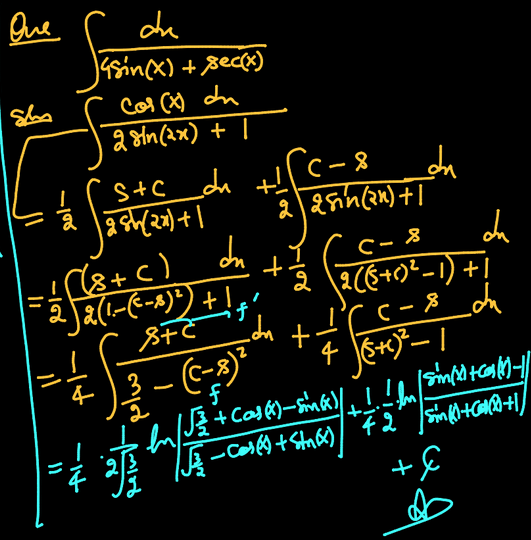 Que ∫ dx / (4sin(x) + sec(x))
Soln ∫ cos(x) dx / (2 sin(2x) + 1)
= 1/2 ∫ (s + c) / (2 sin(2x) + 1) dx + 1/2 ∫ (c - s) / (2 sin(2x) + 1) dx
= 1/2 ∫ (s + c) / (2(1 - (c-s)²) + 1) dx + 1/2 ∫ (c - s) / (2((s+c)² - 1) + 1) dx
= 1/4 ∫ (s + c) / (3/2 - (c-s)²) dx + 1/4 ∫ (c - s) / ((s+c)² - 1) dx
f' f
= 1/4 · 1/(2√(3/2)) ln |(√(3/2) + cos(x) - sin(x)) / (√(3/2) - cos(x) + sin(x))| + 1/4 · 1/2 ln |(sin(x) + cos(x) - 1) / (sin(x) + cos(x) + 1)|
+ C